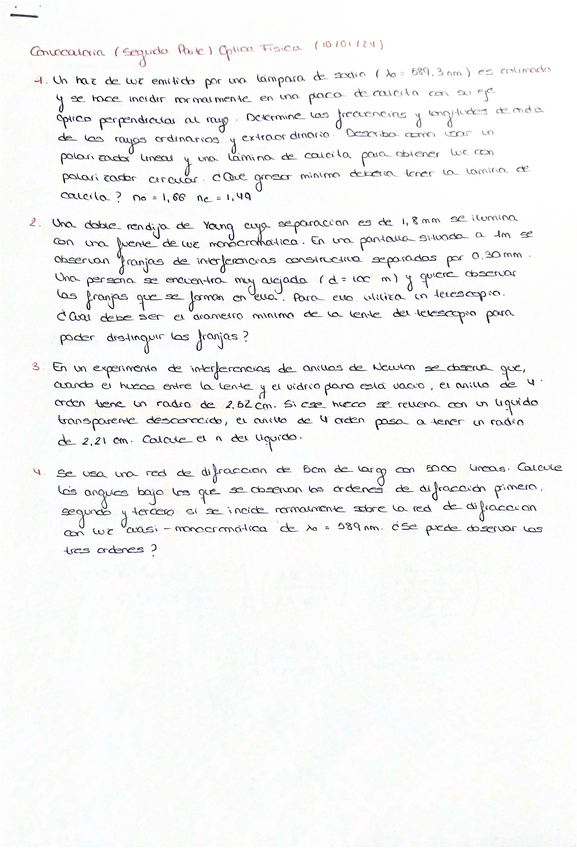 Convocatoria (Segunda Parte) Óptica Física (10/01/24)
1. Un haz de luz emitido por una lámpara de sodio (λo = 589,3 nm) es colimado
y se hace incidir normalmente en una placa de calcita con su eje
óptico perpendicular al rayo. Determine las frecuencias y longitudes de onda
de los rayos ordinarios y extraordinario. Describa como usar un
polarizador lineal y una lámina de calcita para obtener luz con
polarizador circular. ¿Que grosor mínimo debería tener la lámina de
calcita? no = 1,66 ne = 1,49
2. Una doble rendija de Young cuya separación es de 1,8 mm se ilumina
con una fuente de luz monocromática. En una pantalla situada a 1m se
observan franjas de interferencias constructiva separadas por 0,30mm.
Una persona se encuentra muy alejada (d = 100 m) y quiere observar
las franjas que se forman en ella. Para ello utiliza un telescopio.
¿Cual debe ser el diametro mínimo de la lente del telescopio para
poder distinguir las franjas?
3. En un experimento de interferencias de anillos de Newton se observa que,
cuando el hueco entre la lente y el vidrio plano está vacío, el anillo de 4
orden tiene un radio de 2,62 cm. Si ese hueco se rellena con un líquido
transparente desconocido, el anillo de 4 orden pasa a tener un radio
de 2,21 cm. Calcule el n del líquido.
4. Se usa una red de difracción de 5cm de largo con 5000 lineas. Calcule
los angulos bajo los que se observan los ordenes de difracción primero,
segundo y tercero si se incide normalmente sobre la red de difracción
con luz cuasi-monocromática de λo = 589 nm. ¿Se puede observar los
tres ordenes?